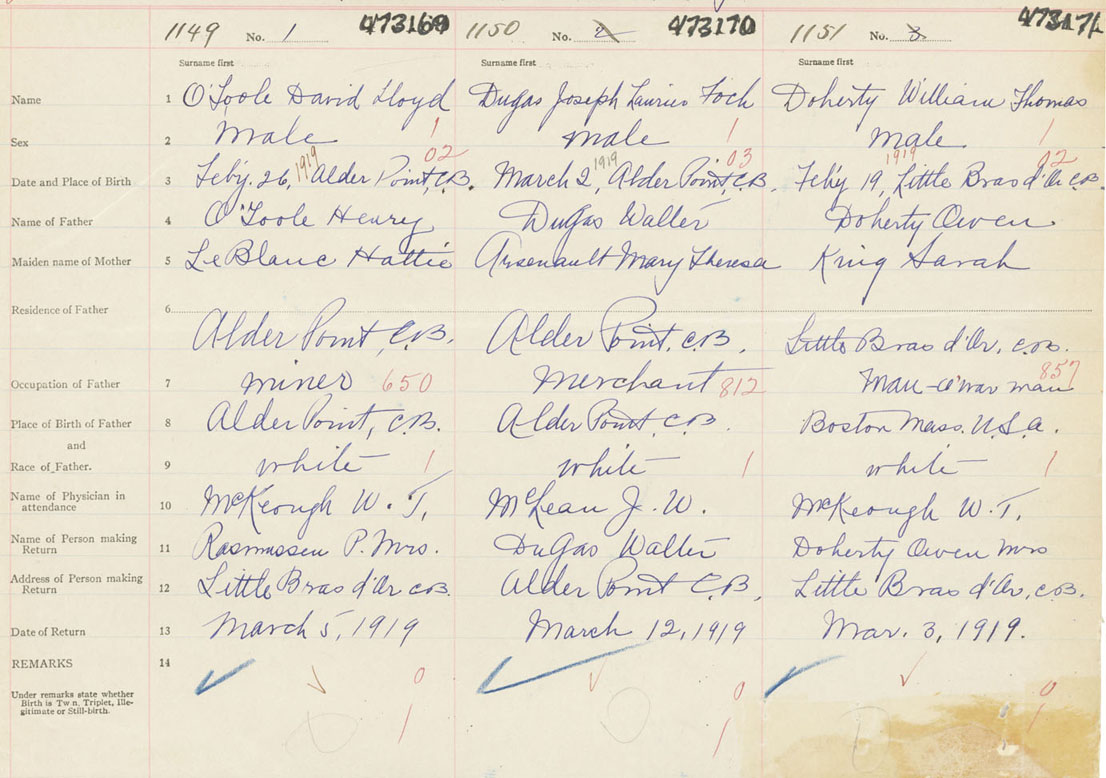 1149 No. 1 473169 1150 No. 2 473170 1151 No. 3 473171
Surname first Surname first Surname first
Name 1 O'Toole David Lloyd Dugas Joseph Laurier Foch Doherty William Thomas
Sex 2 Male 1 Male 1 Male 1
1919 02 1919 03 1919 02
Date and Place of Birth 3 Feby. 26, Alder Point, C.B. March 2, Alder Point, C.B. Feby 19, Little Bras d'Or C.B.
Name of Father 4 O'Toole Henry DuGas Walter Doherty Owen
Maiden name of Mother 5 LeBlanc Hattie Arsenault Mary Theresa King Sarah
Residence of Father 6
Alder Point, C.B. Alder Point, C.B. Little Bras d'Or, C.B.
Occupation of Father 7 miner 650 Merchant 812 Man-o'war man 857
Place of Birth of Father 8 Alder Point, C.B. Alder Point, C.B. Boston Mass. U.S.A.
and
Race of Father. 9 white 1 white 1 white 1
Name of Physician in
attendance 10 McKeough W. T. McLean J. W. McKeough W. T.
Name of Person making
Return 11 Rasmussen P. Mrs. DuGas Walter Doherty Owen Mrs
Address of Person making
Return 12 Little Bras d'Or C.B. Alder Point C.B. Little Bras d'Or, C.B.
Date of Return 13 March 5, 1919 March 12, 1919 Mar. 3, 1919.
REMARKS 14
0 0 0
Under remarks state whether
Birth is Twn, Triplet, Ille-
gitimate or Still-birth.
1 1 1